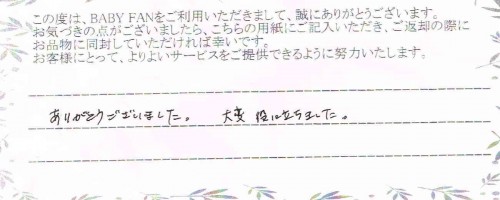 この度は、BABY FANをご利用いただきまして、誠にありがとうございます。
お気づきの点がございましたら、こちらの用紙にご記入いただき、ご返却の際に
お品物に同封していただければ幸いです。
お客様にとって、よりよいサービスをご提供できるように努力いたします。
ありがとうございました。 大変 役に立ちました。